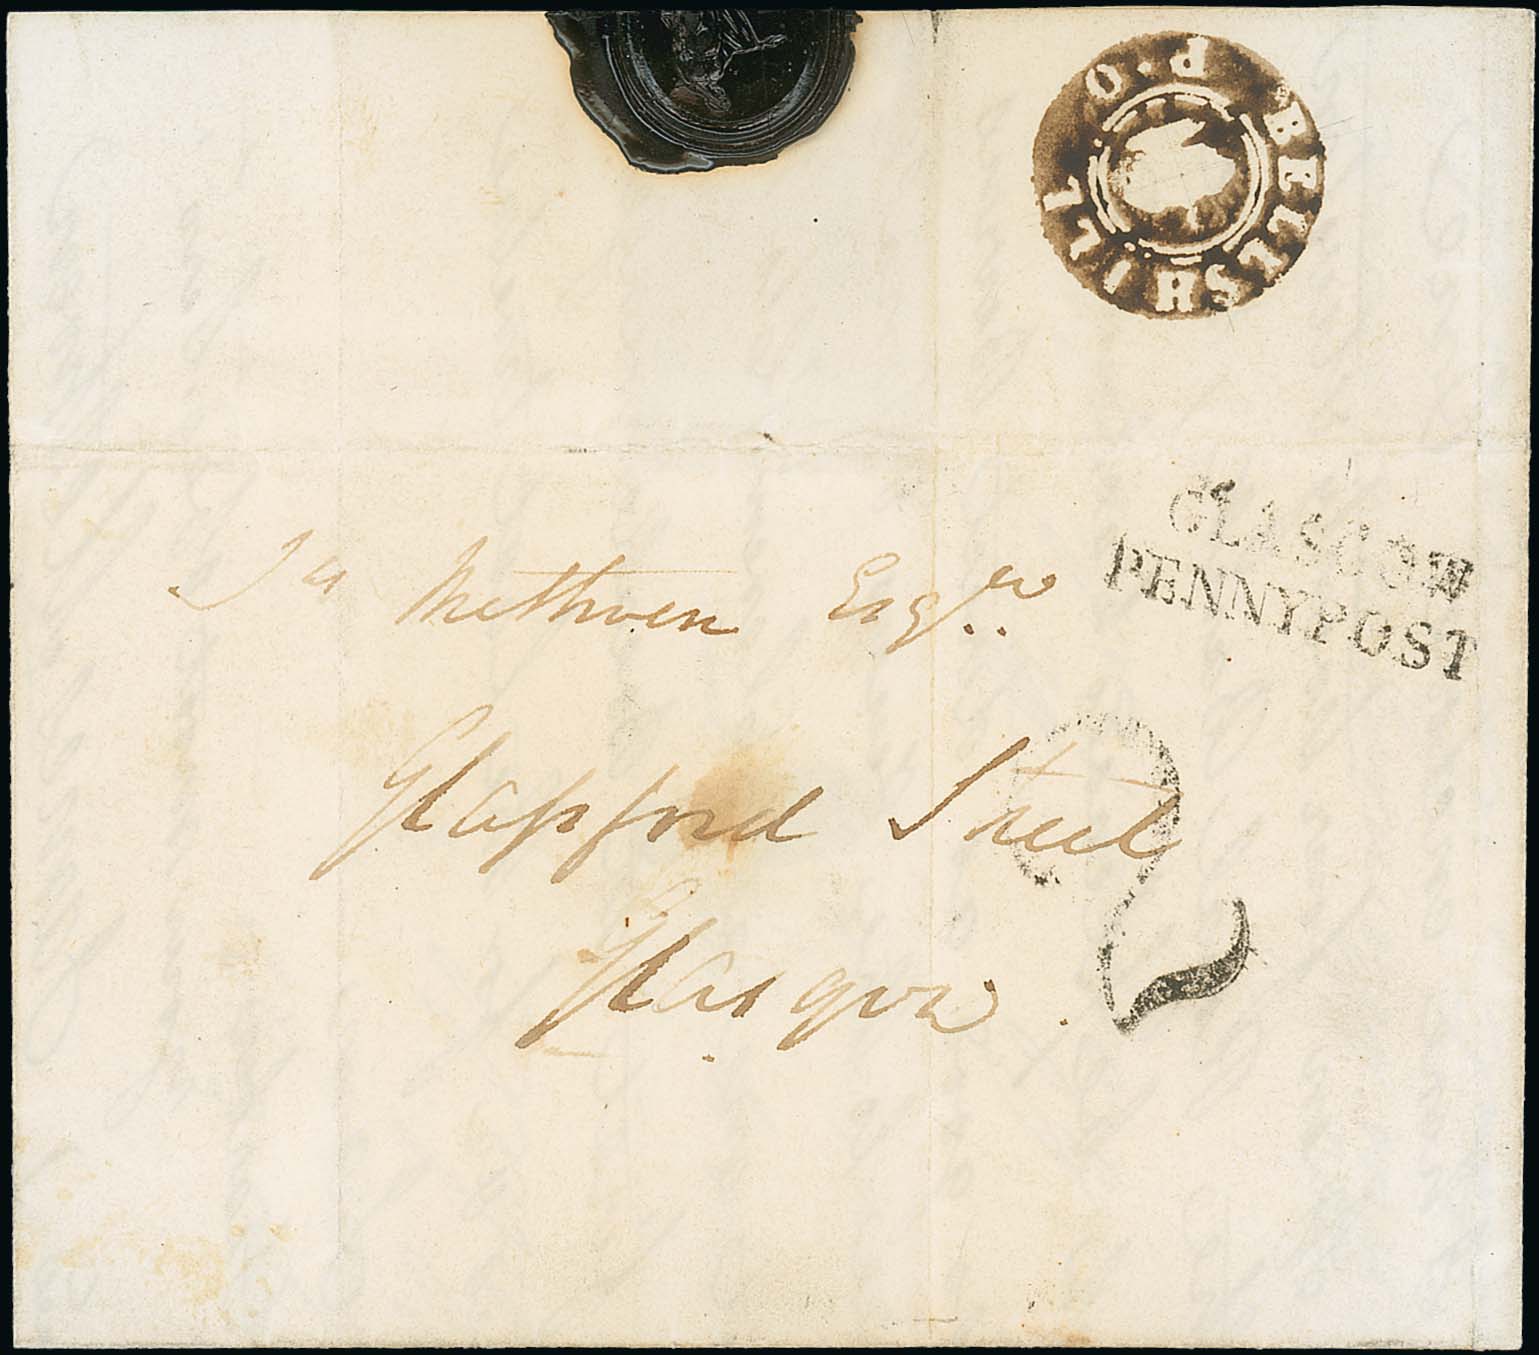 BELLSHILL P.O
GLASGOW
PENNYPOST
Jas Methven Esqre
2
Glassford Street
Glasgow